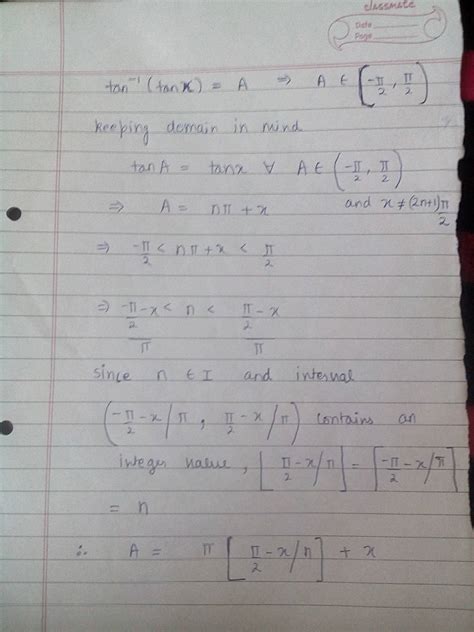 classmate
Date
Page
tan⁻¹(tan x) = A ⇒ A ∈ [-π/2, π/2)
keeping domain in mind
tan A = tan x ∀ A ∈ (-π/2, π/2)
⇒ A = nπ + x and x ≠ (2n+1)π/2
⇒ -π/2 < nπ + x < π/2
⇒ (-π/2 - x)/π < n < (π/2 - x)/π
since n ∈ I and interval
(-π/2 - x/π, π/2 - x/π) contains an
integer value, ⌊π/2 - x/π⌋ = ⌈-π/2 - x/π⌉
= n
∴ A = π ⌊π/2 - x/π⌋ + x